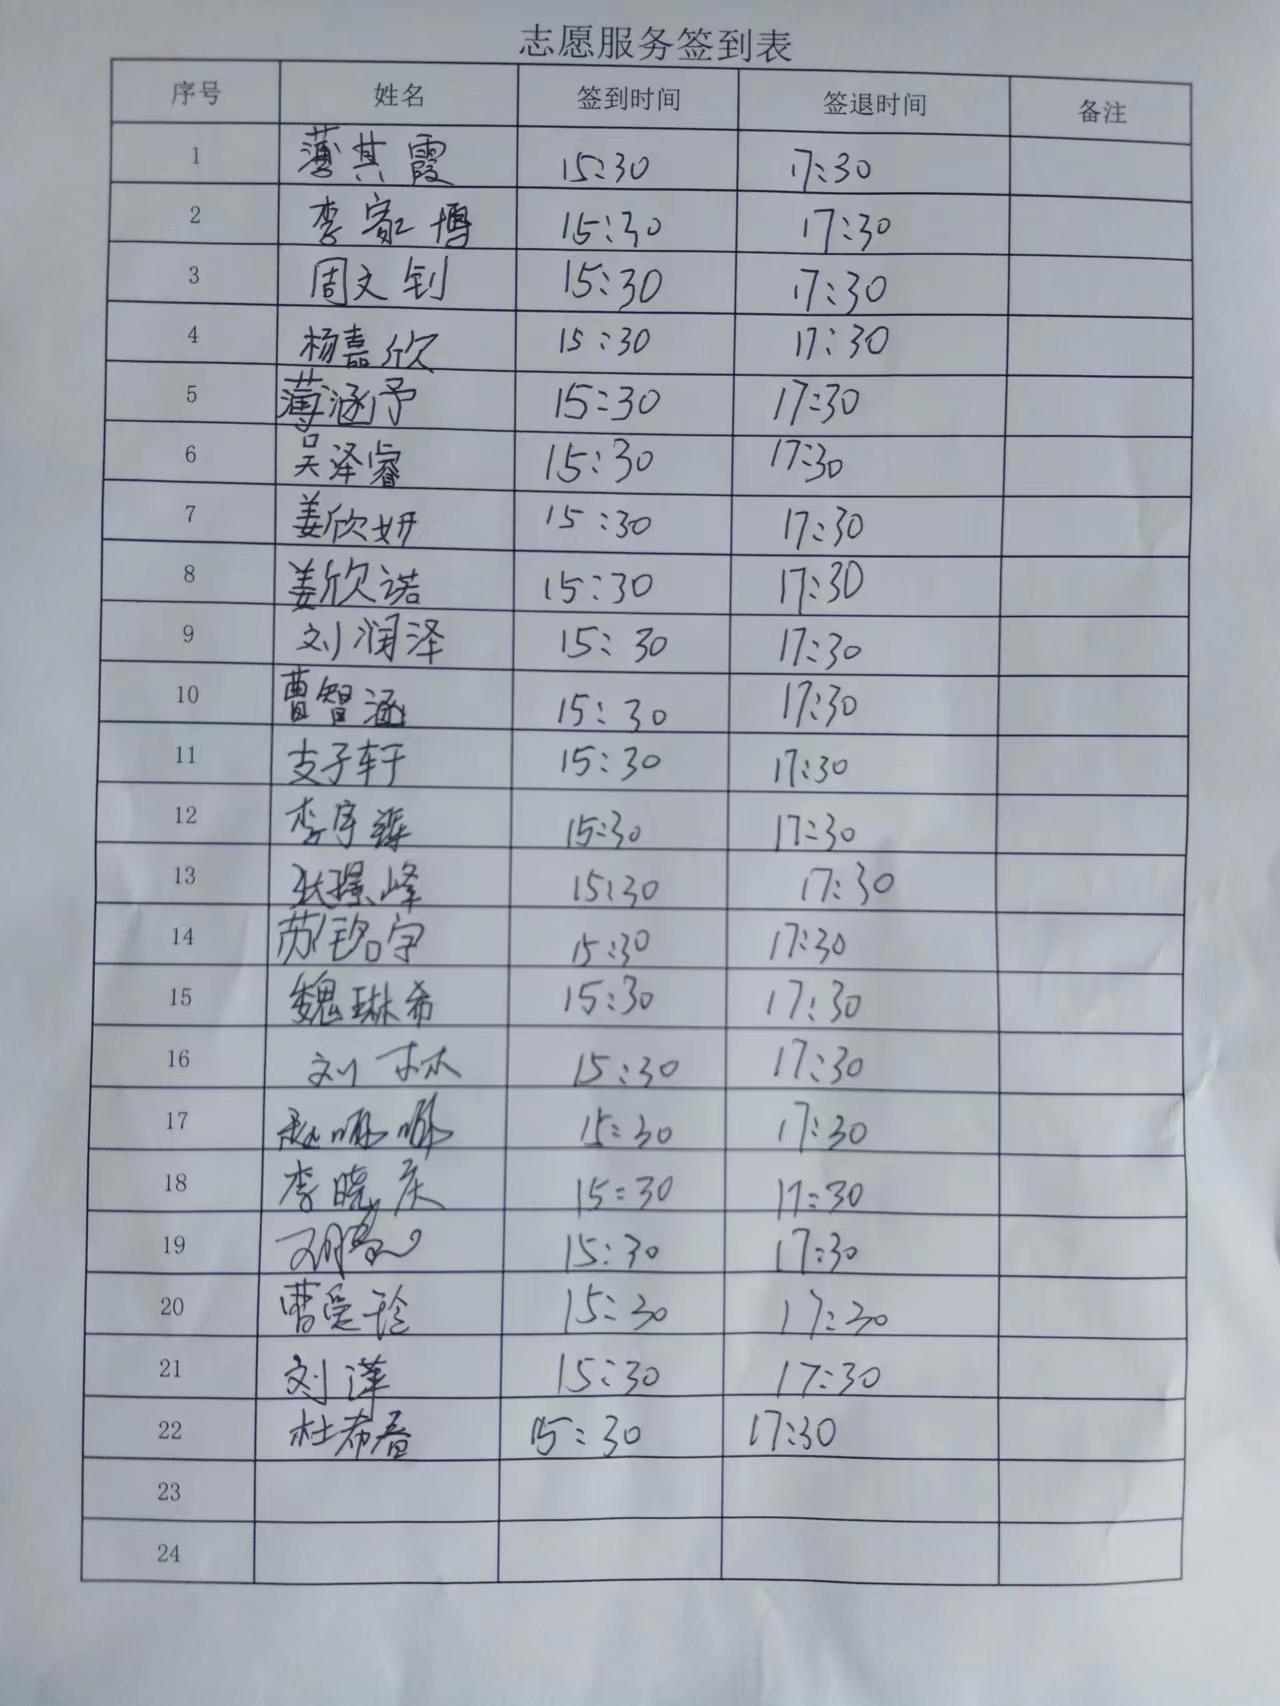 志愿服务签到表
序号 姓名 签到时间 签退时间 备注
1 薄其霞 15:30 17:30
2 李家博 15:30 17:30
3 周文钊 15:30 17:30
4 杨嘉欣 15:30 17:30
5 薄涵予 15:30 17:30
6 吴泽睿 15:30 17:30
7 姜欣妍 15:30 17:30
8 姜欣诺 15:30 17:30
9 刘润泽 15:30 17:30
10 曹智涵 15:30 17:30
11 支子轩 15:30 17:30
12 李宇 15:30 17:30
13 张璟峰 15:30 17:30
14 苏铭宇 15:30 17:30
15 魏琳希 15:30 17:30
16 刘林 15:30 17:30
17 赵 15:30 17:30
18 李晓庆 15:30 17:30
19 15:30 17:30
20 曹爱玲 15:30 17:30
21 刘洋 15:30 17:30
22 杜希春 15:30 17:30
23
24